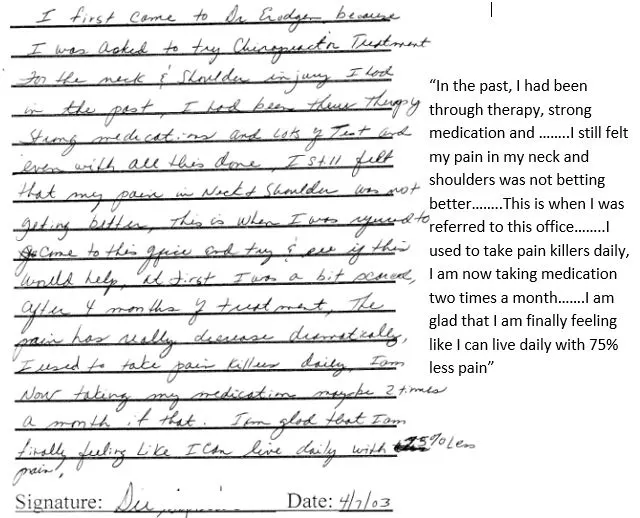 I first came to Dr because
I was asked to try Chiropractic Treatment
For the neck & Shoulder injury I had
in the past, I had been threw Therapy
Strong medications and lots of Test and
even with all this done, I still felt
that my pain in Neck & Shoulder was not
geting better, This is when I was to
come to this office and try & see if this
would help, at first I was a bit scared,
after 4 months of treatment, The
pain has really decrease dramatically,
I used to take pain killers daily, I am
Now taking my medication maybe 2 times
a month if that. I am glad that I am
finally feeling Like I Can live daily with 75% Less
pain.
Signature: Date: 4/7/03
“In the past, I had been
through therapy, strong
medication and ........I still felt
my pain in my neck and
shoulders was not betting
better........This is when I was
referred to this office........I
used to take pain killers daily,
I am now taking medication
two times a month.......I am
glad that I am finally feeling
like I can live daily with 75%
less pain”